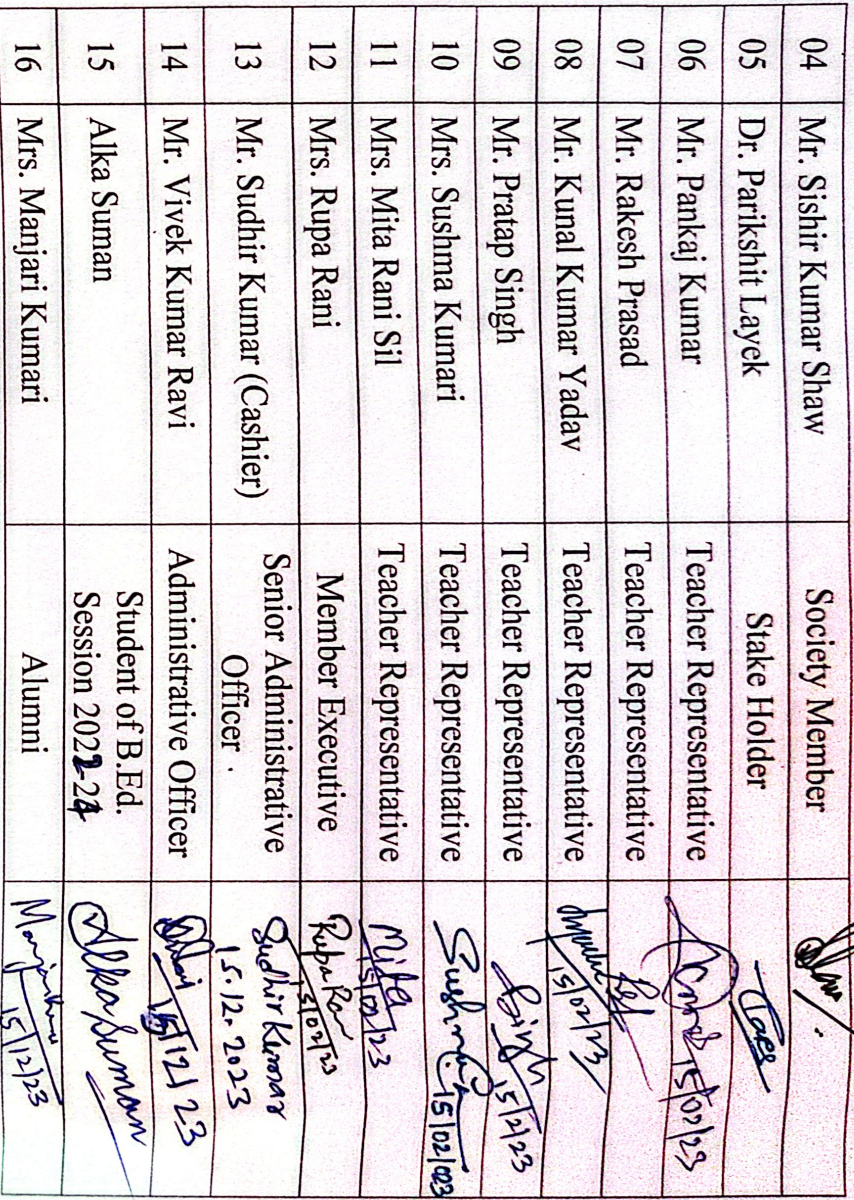 04 Mr. Sishir Kumar Shaw Society Member
05 Dr. Parikshit Layek Stake Holder
06 Mr. Pankaj Kumar Teacher Representative 15/02/23
07 Mr. Rakesh Prasad Teacher Representative
08 Mr. Kunal Kumar Yadav Teacher Representative 15/02/23
09 Mr. Pratap Singh Teacher Representative Singh 15/2/23
10 Mrs. Sushma Kumari Teacher Representative Sushma 15/02/023
11 Mrs. Mita Rani Sil Teacher Representative Mita 15/02/23
12 Mrs. Rupa Rani Member Executive Rupa Rani 15/02/23
13 Mr. Sudhir Kumar (Cashier) Senior Administrative Sudhir Kumar
Officer . 15.12.2023
14 Mr. Vivek Kumar Ravi Administrative Officer 15/12/23
15 Alka Suman Student of B.Ed. Alka Suman
Session 2022-24
16 Mrs. Manjari Kumari Alumni 15/12/23